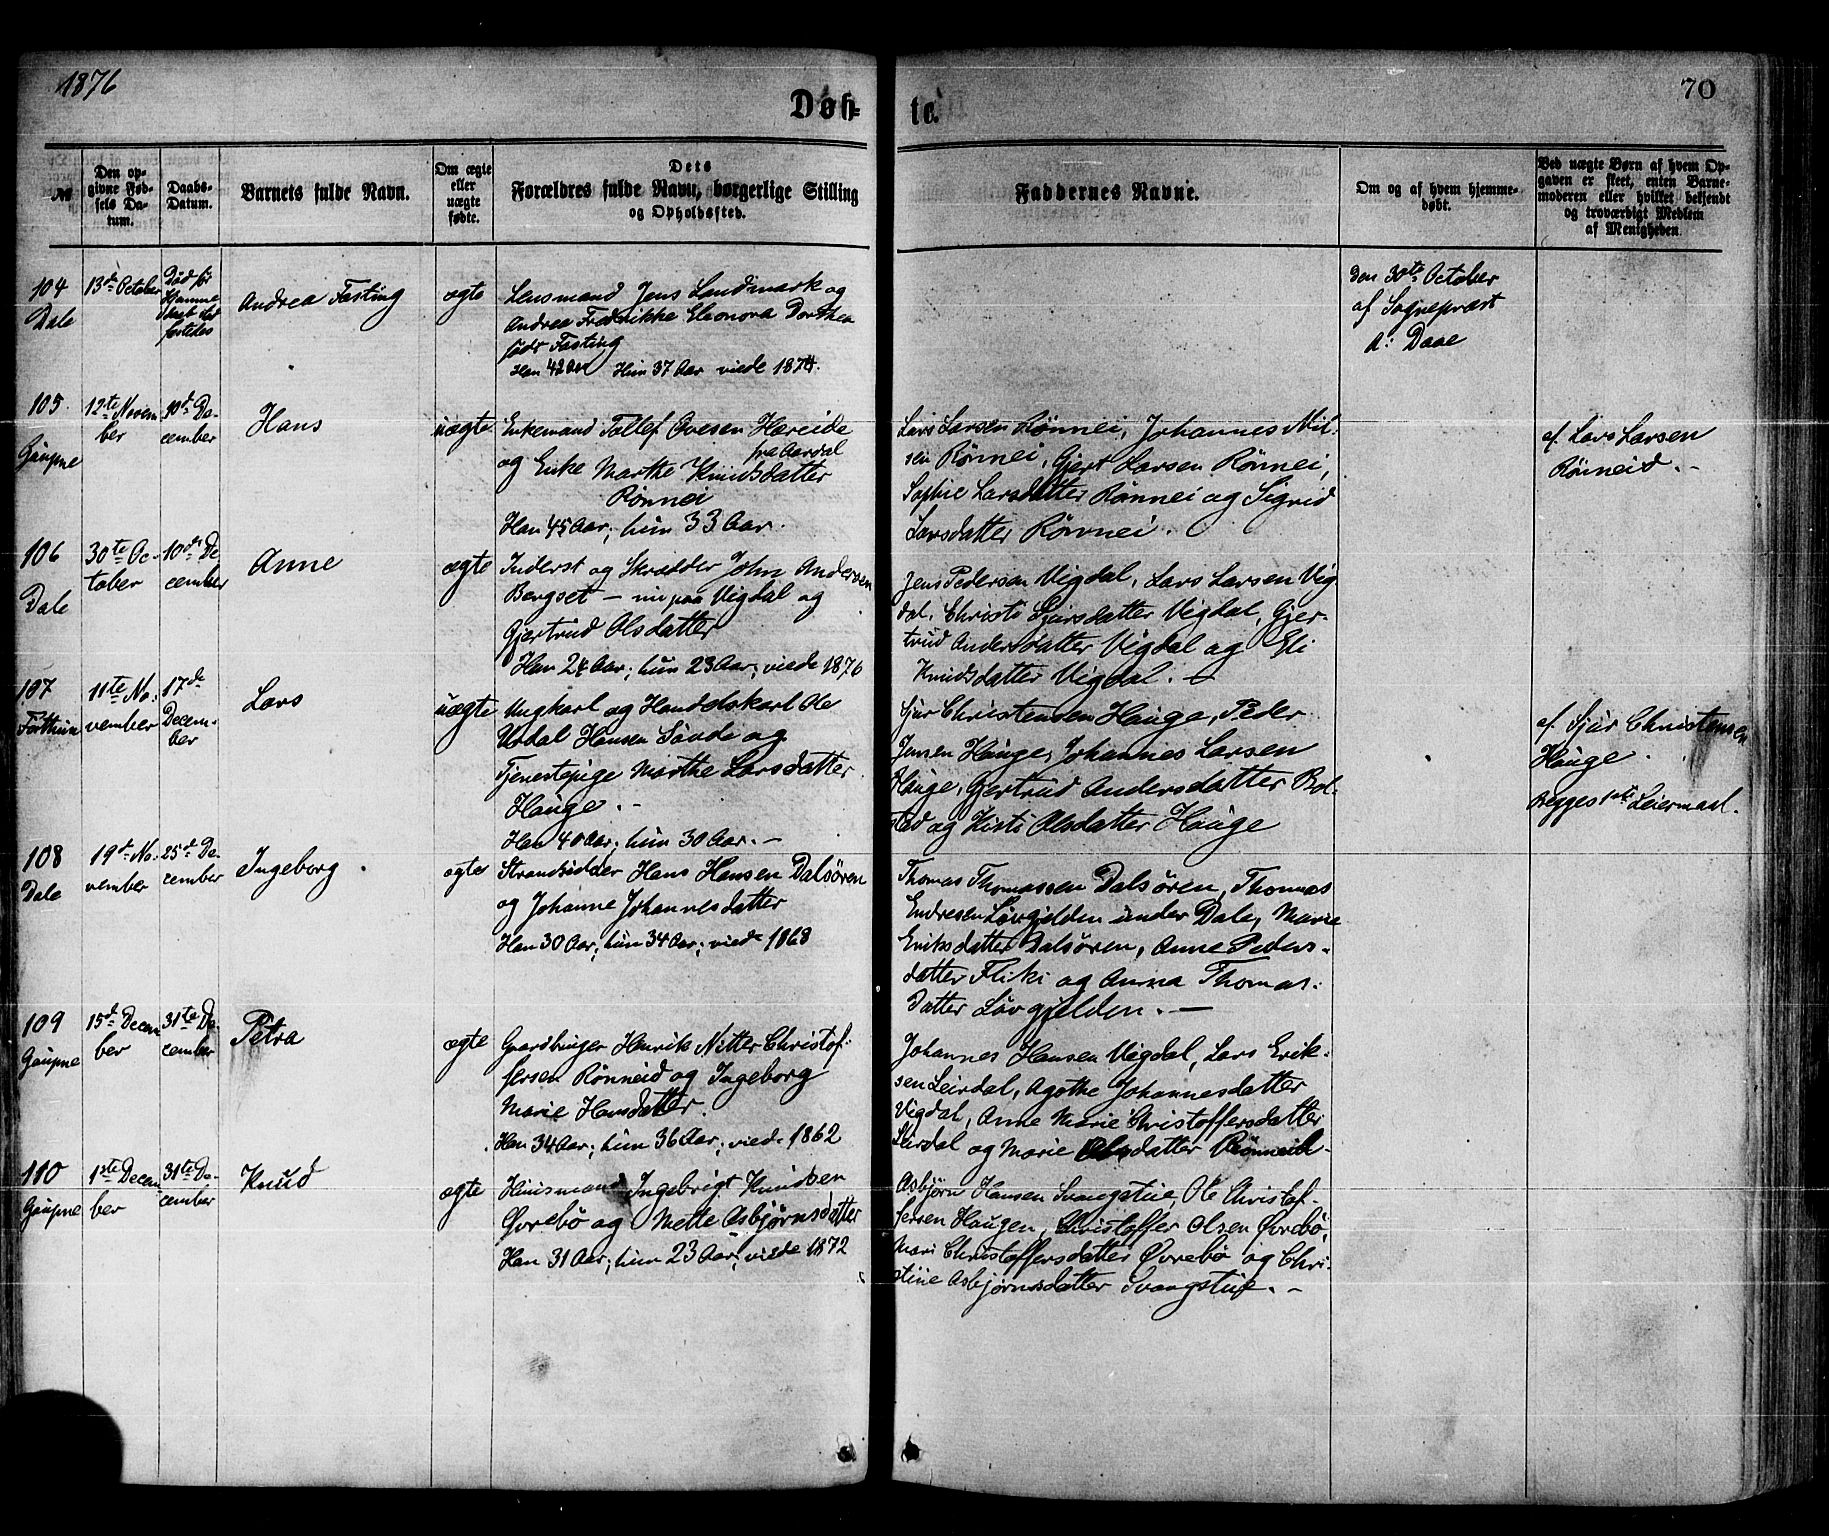 1876
70
Døb-
te.
№
Den op-
givne Fød-
sels Da-
tum.
Daabs-
Datum.
Barnets fulde Navn.
Om ægte
eller
uægte
fødte.
Dets
Forældres fulde Navn, borgerlige Stilling
og Opholdssted.
Faddernes Navne.
Om og af hvem hjemme-
døbt.
Ved uægte Børn af hvem Op-
gaven er skeet, enten Barne-
moderen eller hvilket bekjendt
og troværdigt Medlem
af Menigheden.
104
Dale
13de October
Død før
Hjemme
daab
Andrea Fasting
ægte
Lensmand Jens Landmark og
Andrea Fredrikke Eleonora Dorthea
født Fasting
Han 42 Aar Hun 37 Aar viede 1874.
Den 30te October
af Sognepræst
A: Daae
105
Gaupne
12te Novem
ber
10de De-
cember
Hans
uægte
Enkemand Tollef Ovesen Hæreide
fra Aardal
og Enke Marthe Knudsdatter
Rønnei
Han 45 Aar; hun 33 Aar.
Lars Larsen Rønnei, Johannes Nil-
sen Rønnei, Gjert Larsen Rønnei,
Sophie Larsdatter Rønnei og Sigrid
Larsdatter Rønnei.
af Lars Larsen
Rönneid. -
106
Dale
30te Oc-
tober
10de De
cember
Anne
ægte
Inderst og Skrædder John Andersen
Bergset - nu paa Vigdal og
Gjertrud Olsdatter
Han 24 Aar; hun 23 Aar; viede 1876
Jens Pedersen Vigdal, Lars Larsen Vig
dal, Christi Sjursdatter Vigdal, Gjer-
trud Andersdatter Vigdal og Eli
Knudsdatter Vigdal. -
107
Forthun
11te No:
vember
17de
Decem-
ber
Lars
uægte
Ungkarl og Handelskarl Ole
Urdal Hansen Søvde og
Tjenestepige Marthe Larsdatter
Hauge. -
Han 40 Aar; hun 30 Aar. -
Sjur Christensen Hauge, Peder
Jensen Hauge, Johannes Larsen
Hauge, Gjertrud Andersdatter Bol-
stad og Kisti Olsdatter Hauge
af Sjur Christensen
Hauge
Begges 1ste Leiermaal.
108
Dale
19de No:
vember
25de De-
cember
Ingeborg
ægte
Strandsidder Hans Hansen Dalsören
og Johanne Johannesdatter
Han 30 Aar; hun 34 Aar; viede 1868
Thomas Thomassen Dalsören, Thomas
Endresen Løvgjelden under Dale, Marie
Eriksdatter Dalsören, Anne Peders-
datter Fliki og Anna Thomas-
datter Løvgjelden. -
109
Gaupne
15de Decem
ber
31te De-
cember
Petra
ægte
Gaardbruger Henrik Nitter Christof-
fersen Rönneid og Ingeborg
Marie Hansdatter.
Han 34 Aar; hun 36 Aar; viede 1862
Johannes Hansen Vigdal, Lars Erik-
sen Leirdal, Agothe Johannesdatter
Vigdal, Anne Marie Christoffersdatter
Leirdal og Marie Olsdatter Rönneid.
110
Gaupne
1ste Decem
ber
31te De-
cember
Knud
ægte
Huusmand Ingebrigt Knudsen
Øvrebø og Mette Asbjørnsdatter
Han 31 Aar; hun 23 Aar; viede 1872
Asbjørn Hansen Svangstue, Ole Christof-
fersen Haugen, Christoffer Olsen Øvrebø,
Mari Christoffersdatter Øvrebø og Chri-
stine Asbjørnsdatter Svangstue. -